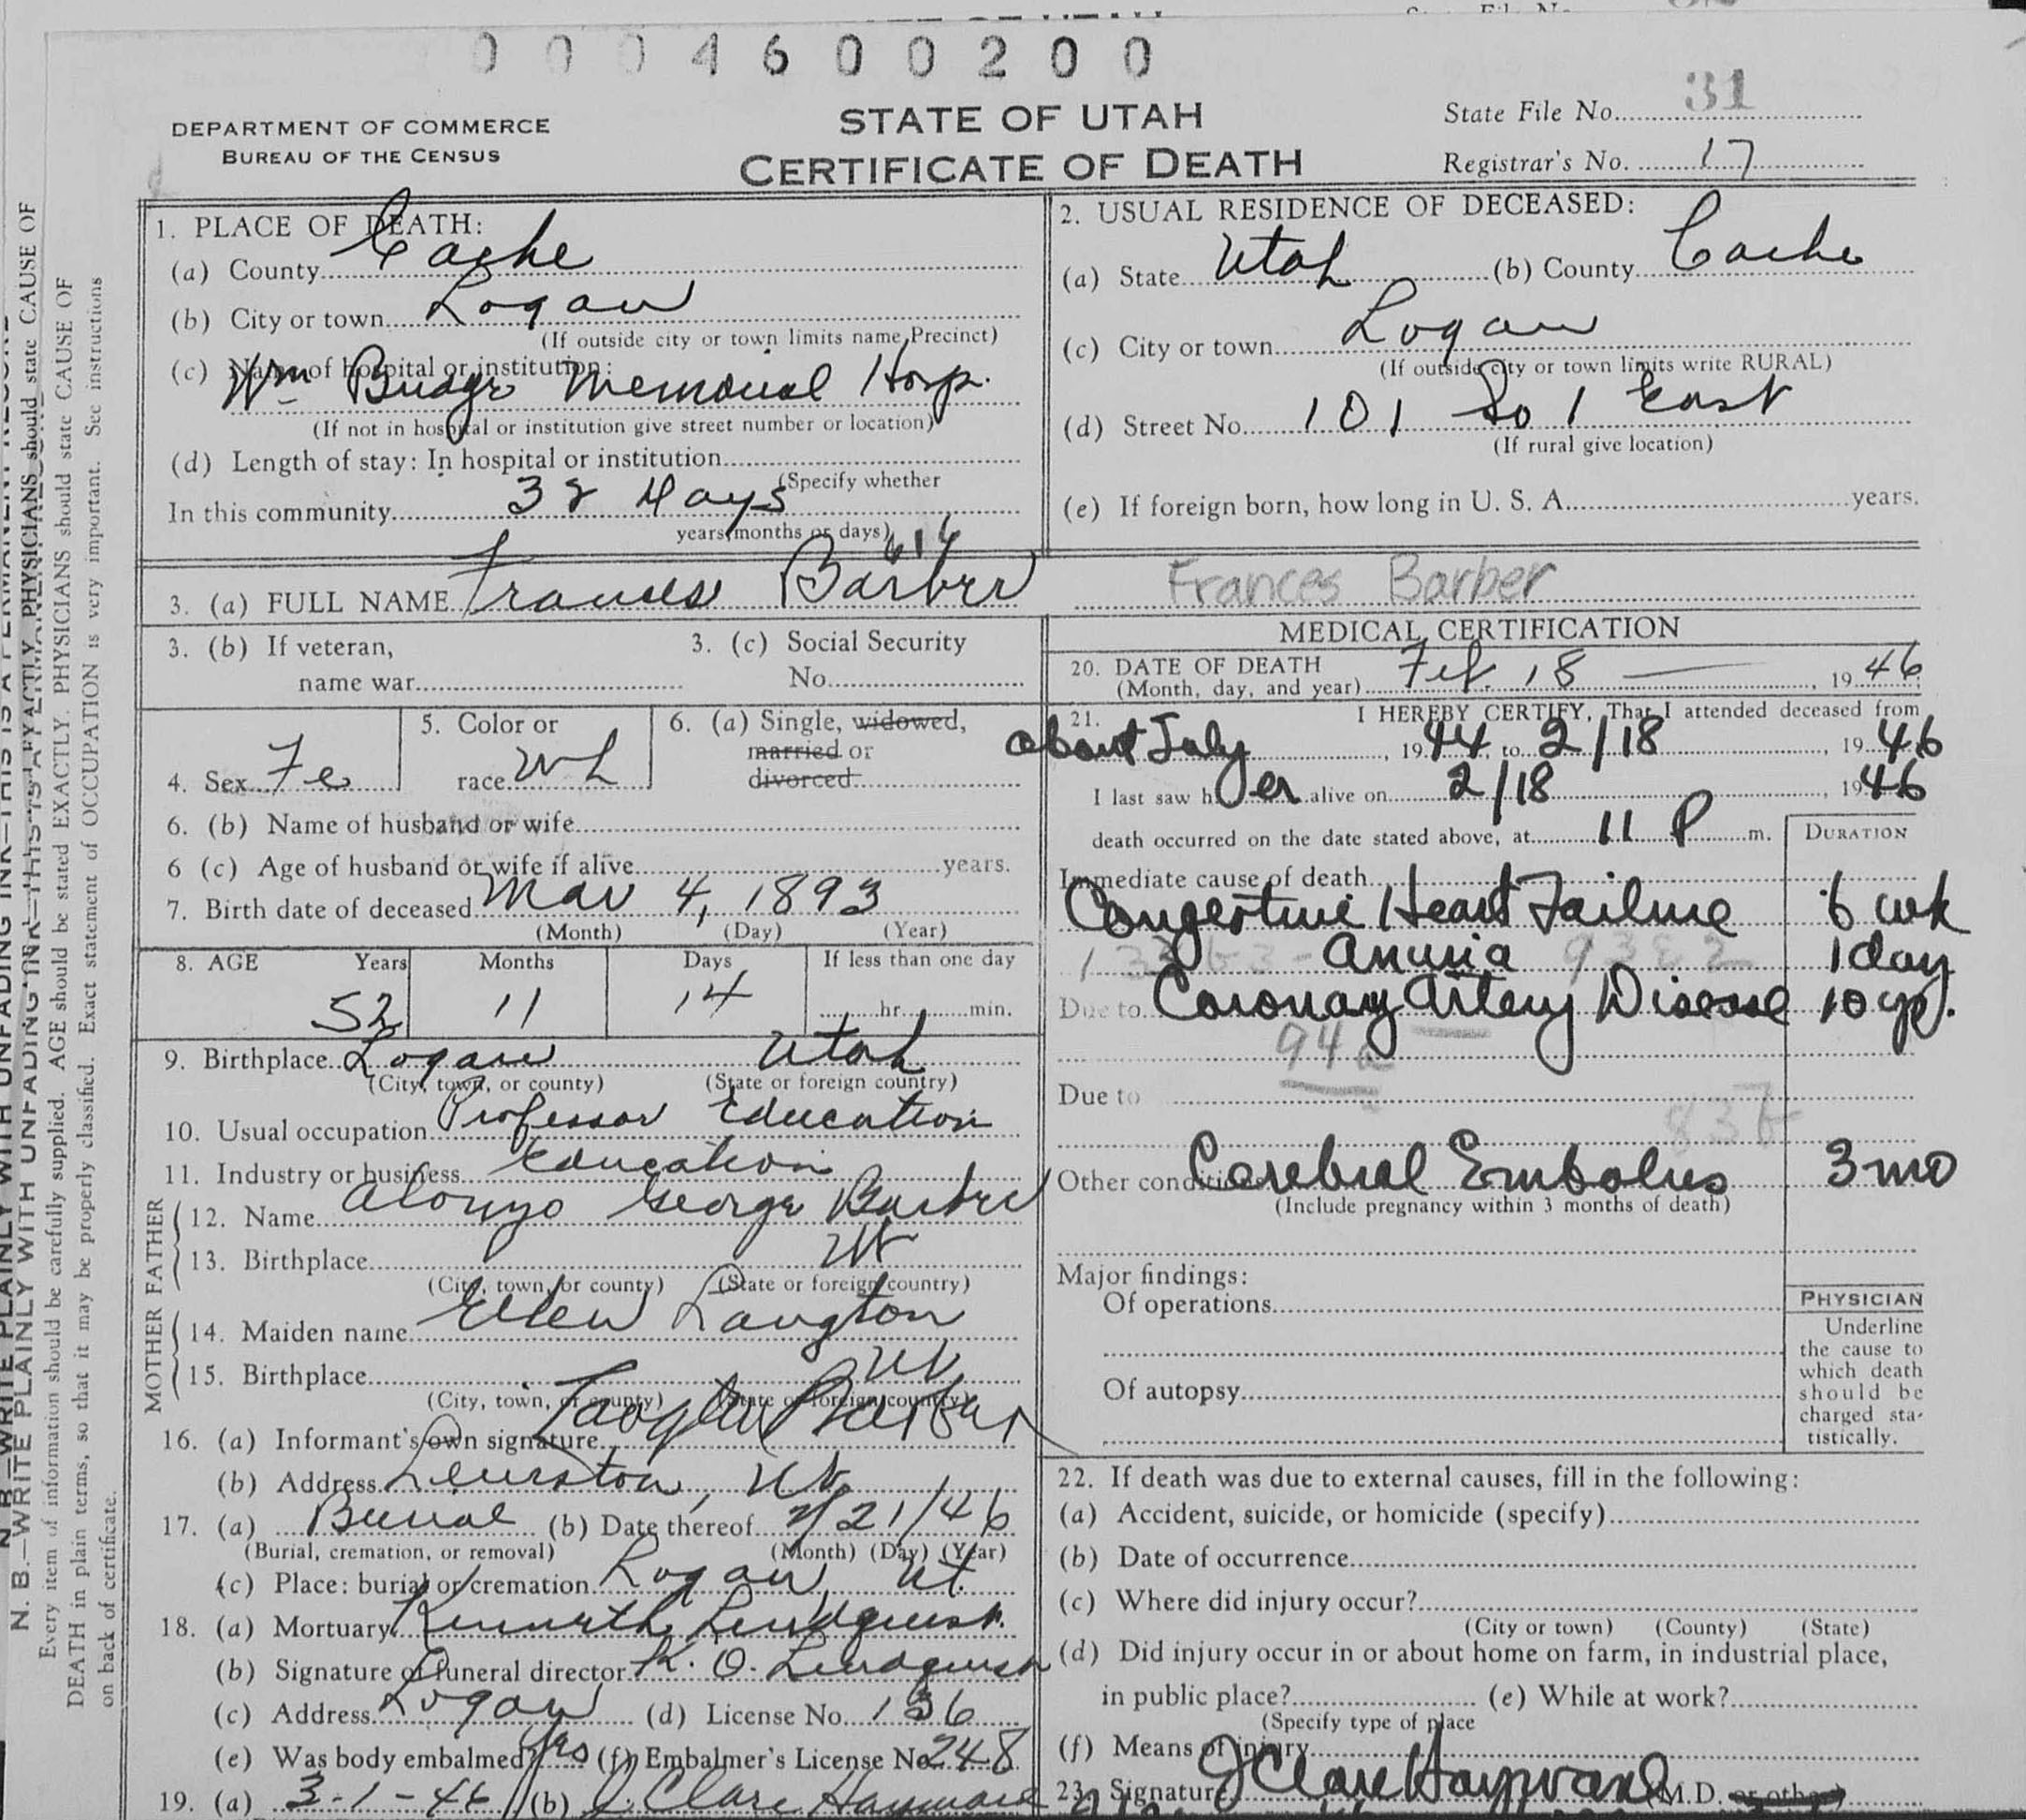 0 0 0 4 6 0 0 2 0 0
DEPARTMENT OF COMMERCE
BUREAU OF THE CENSUS
STATE OF UTAH
CERTIFICATE OF DEATH
State File No. 31
Registrar's No. 17
1. PLACE OF DEATH:
(a) County Cache
(b) City or town Logan
(If outside city or town limits name Precinct)
(c) Name of hospital or institution:
Wm Budge Memorial Hosp.
(If not in hospital or institution give street number or location)
(d) Length of stay: In hospital or institution
(Specify whether
In this community 38 Days
years, months or days)
2. USUAL RESIDENCE OF DECEASED:
(a) State Utah (b) County Cache
(c) City or town Logan
(If outside city or town limits write RURAL)
(d) Street No. 101 So 1 East
(If rural give location)
(e) If foreign born, how long in U. S. A. years.
616
3. (a) FULL NAME Frances Barber
Frances Barber
3. (b) If veteran,
name war
3. (c) Social Security
No.
4. Sex Fe
5. Color or
race Wh
6. (a) Single, widowed,
married or
divorced
6. (b) Name of husband or wife
6 (c) Age of husband or wife if alive years.
7. Birth date of deceased Mar 4, 1893
(Month) (Day) (Year)
8. AGE Years Months Days If less than one day
52 11 14 hr. min.
9. Birthplace Logan Utah
(City, town, or county) (State or foreign country)
10. Usual occupation Professor Education
11. Industry or business Education
FATHER
12. Name Alonzo George Barber
13. Birthplace Ut
(City, town, or county) (State or foreign country)
MOTHER
14. Maiden name Ellen Langton
15. Birthplace Ut
(City, town, or county) (State or foreign country)
16. (a) Informant's own signature Barber
(b) Address Lewiston, Ut.
17. (a) Burial (b) Date thereof 2/21/46
(Burial, cremation, or removal) (Month) (Day) (Year)
(c) Place: burial or cremation Logan, Ut.
18. (a) Mortuary Kenneth Lindquist
(b) Signature of funeral director K. O. Lindquist
(c) Address Logan (d) License No. 136
(e) Was body embalmed? Yes (f) Embalmer's License No. 248
19. (a) 3-1-46 (b) J. Clare Hayward
MEDICAL CERTIFICATION
20. DATE OF DEATH
(Month, day, and year) Feb. 18 , 19 46
21. I HEREBY CERTIFY, That I attended deceased from
about July , 19 44 to 2/18 , 19 46
I last saw h er alive on 2/18 , 19 46
death occurred on the date stated above, at 11 P m.
DURATION
Immediate cause of death
Congestive Heart Failure 6 wk
Anuria 1 day
Due to Coronary Artery Disease 10 yr.
94a
Due to
83b
Other conditions Cerebral Embolus 3 mo
(Include pregnancy within 3 months of death)
Major findings:
Of operations
Of autopsy
PHYSICIAN
Underline
the cause to
which death
should be
charged sta-
tistically.
22. If death was due to external causes, fill in the following:
(a) Accident, suicide, or homicide (specify)
(b) Date of occurrence
(c) Where did injury occur?
(City or town) (County) (State)
(d) Did injury occur in or about home on farm, in industrial place,
in public place? (e) While at work?
(Specify type of place
(f) Means of injury
23. Signature J Clare Hayward (M.D. or other)
N. B.—WRITE PLAINLY WITH UNFADING INK—THIS IS A PERMANENT RECORD
Every item of information should be carefully supplied. AGE should be stated EXACTLY. PHYSICIANS should state CAUSE OF
DEATH in plain terms, so that it may be properly classified. Exact statement of OCCUPATION is very important. See instructions
on back of certificate.